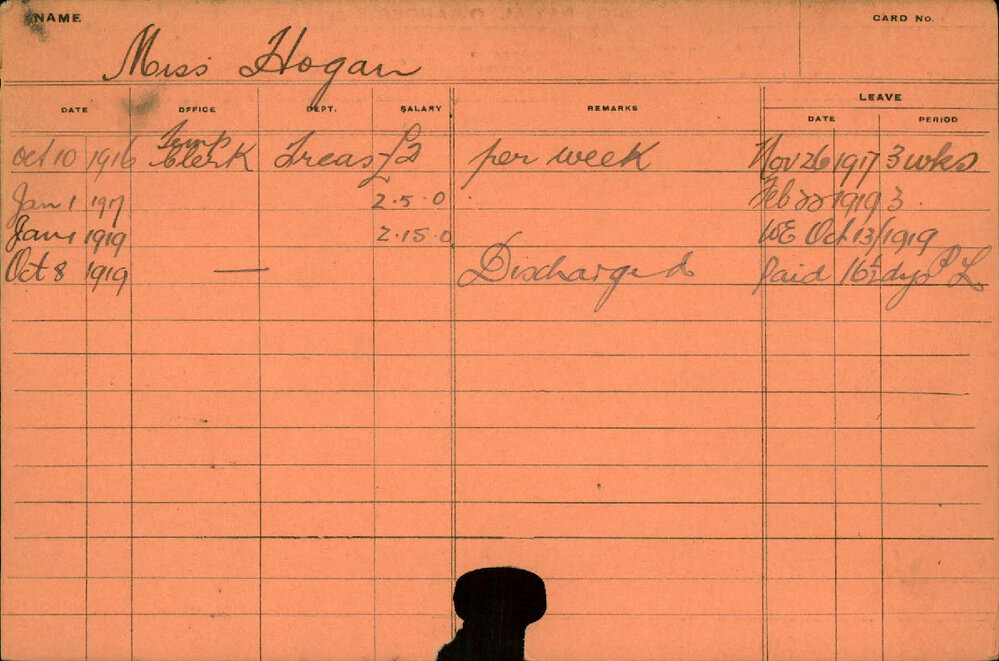 NAME
CARD No.
Miss Hogan
LEAVE
DATE OFFICE DEPT. SALARY REMARKS DATE PERIOD
Oct 10 1916 Temp Clerk Treas £2 per week Nov 26 1917 3 wks
Jan 1 1917 2.5.0 Feb 22 1919 3
Jan 1 1919 2.15.0 WE Oct 13/1919
Oct 8 1919 — Discharged Paid 16½ dys P L